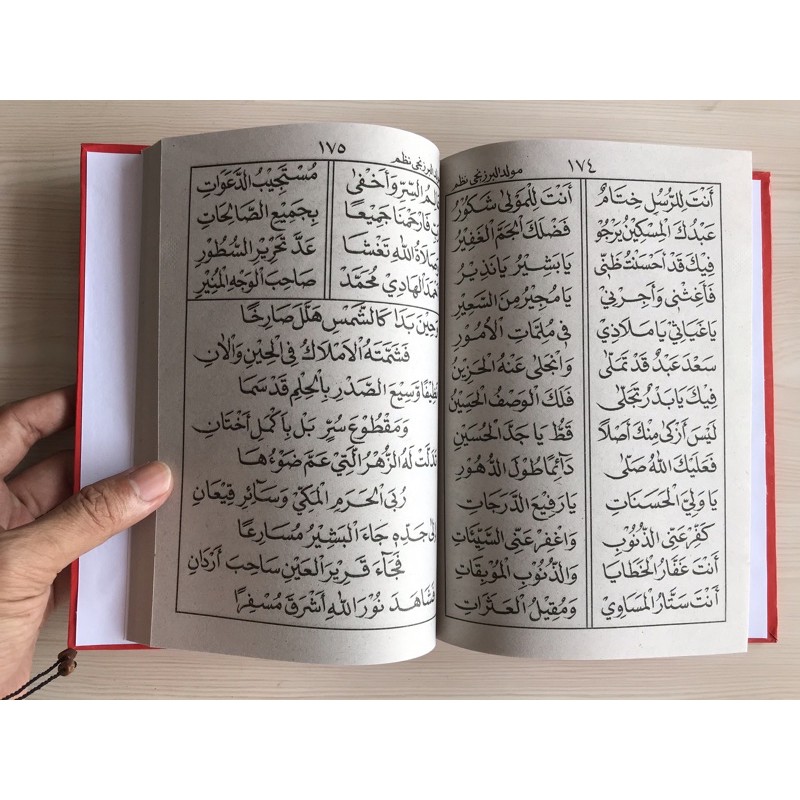 ١٧٤ مولد البرزنجي نظم
أَنْتَ لِلرُّسُلِ خِتَامٌ أَنْتَ لِلْمَوْلَى شَكُوْرُ
عَبْدُكَ الْمِسْكِيْنُ يَرْجُوْ فَضْلَكَ الْجَمَّ الْغَفِيْرُ
فِيْكَ قَدْ أَحْسَنْتُ ظَنِّى يَا بَشِيْرُ يَا نَذِيْرُ
فَأَغِثْنِى وَأَجِرْنِى يَا مُجِيْرُ مِنَ السَّعِيْرِ
يَا غِيَاثِى يَا مَلَاذِى فِى مُلِمَّاتِ الْأُمُوْرِ
سَعْدَ عَبْدٌ قَدْ تَمَلَّى وَانْجَلَى عَنْهُ الْحَزِيْنُ
فِيْكَ يَا بَدْرُ تَجَلَّى فَلَكَ الْوَصْفُ الْحَسِيْنُ
لَيْسَ أَزْكَى مِنْكَ أَصْلًا قَطُّ يَا جَدَّ الْحُسَيْنِ
فَعَلَيْكَ اللّٰهُ صَلَّى دَآئِمًا طُوْلَ الدُّهُوْرِ
يَا وَلِيَّ الْحَسَنَاتِ يَا رَفِيْعَ الدَّرَجَاتِ
كَفِّرْ عَنِّى الذُّنُوْبَ وَاغْفِرْ عَنِّى السَّيِّئَاتِ
أَنْتَ غَفَّارُ الْخَطَايَا وَالذُّنُوْبِ الْمُوْبِقَاتِ
أَنْتَ سَتَّارُ الْمَسَاوِيْ وَمُقِيْلُ الْعَثَرَاتِ
١٧٥ البرزنجي نظم
السِّرِّ وَأَخْفَى مُسْتَجِيْبُ الدَّعَوَاتِ
فَارْحَمْنَا جَمِيْعًا بِجَمِيْعِ الصَّالِحَاتِ
اللّٰهِ تَغْشَا عَدَّ تَحْرِيْرِ السُّطُوْرِ
الْهَادِيْ مُحَمَّدْ صَاحِبَ الْوَجْهِ الْمُنِيْرِ
بَدَا كَالشَّمْسِ هَلَّلَ صَارِخًا
فَشَمَّتَهُ الْأَمْلَاكُ فِى الْحِيْنِ وَالْاٰنِ
وَسِيْعَ الصَّدْرِ بِالْحِلْمِ قَدْ سَمَا
وَمَقْطُوْعَ سُرٍّ بَلْ بِأَكْمَلِ أَخْتَانِ
لَهُ الزُّهْرُ الَّتِيْ عَمَّ ضَوْءُهَا
رُبَى الْحَرَمِ الْمَكِّيْ وَسَآئِرِ قِيْعَانِ
جَدِّهِ جَاءَ الْبَشِيْرُ مُسَارِعًا
فَجَآءَ قَرِيْرَ الْعَيْنِ سَاحِبَ أَرْدَانِ
نُوْرَ اللّٰهِ أَشْرَقَ مُسْفِرًا